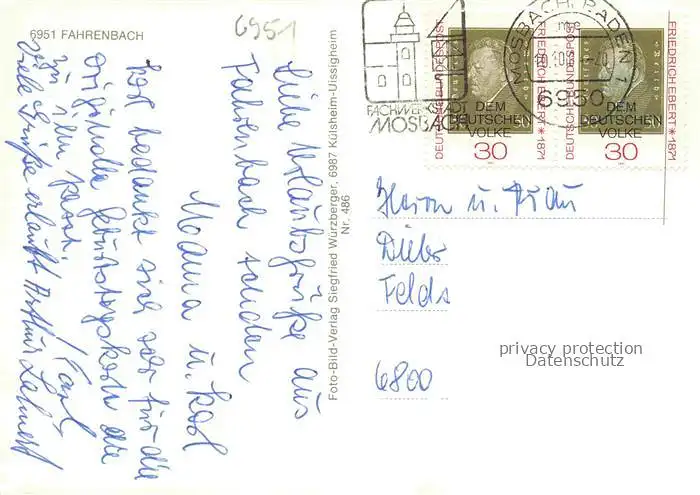 6951 FAHRENBACH
6951
Liebe Urlaubsgrüße aus
Fahrenbach senden
Mama u. Karl
Karl bedankt sich sehr für die
originelle Geburtstagskarte die
zu ihm passt.
Karl
Viele Grüße erlaubt Arthur
Foto-Bild-Verlag Siegfried Würzberger, 6987 Külsheim-Uissigheim
Nr. 486
FACHWERKSTADT
MOSBACH
MOSBACH, BADEN 1
6950
DEUTSCHE BUNDESPOST
FRIEDRICH EBERT * 1871
DEM
DEUTSCHEN
VOLKE
30
DEUTSCHE BUNDESPOST
FRIEDRICH EBERT * 1871
DEM
DEUTSCHEN
VOLKE
30
Herrn u. Frau
Dieter
Felds
6800
privacy protection
Datenschutz